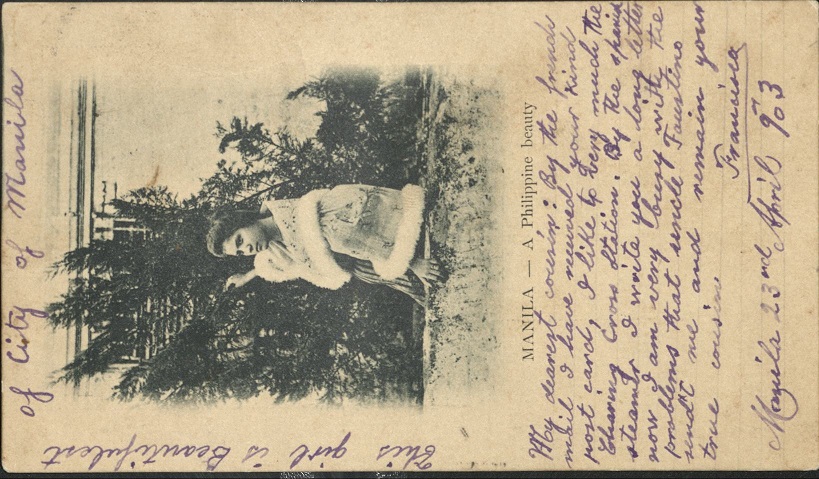 This girl is Beautifulest
of City of Manila
MANILA — A Philippine beauty
My dearest cousin: By the french
mail I have received your kind
post card, I like to very much the
Charing Cross Station. By the spanish
steamer I write you a long letter
now I am very busy with the
problems that uncle Faustino
send't me and remain your
true cousin
Francisca
Manila 23rd April 903